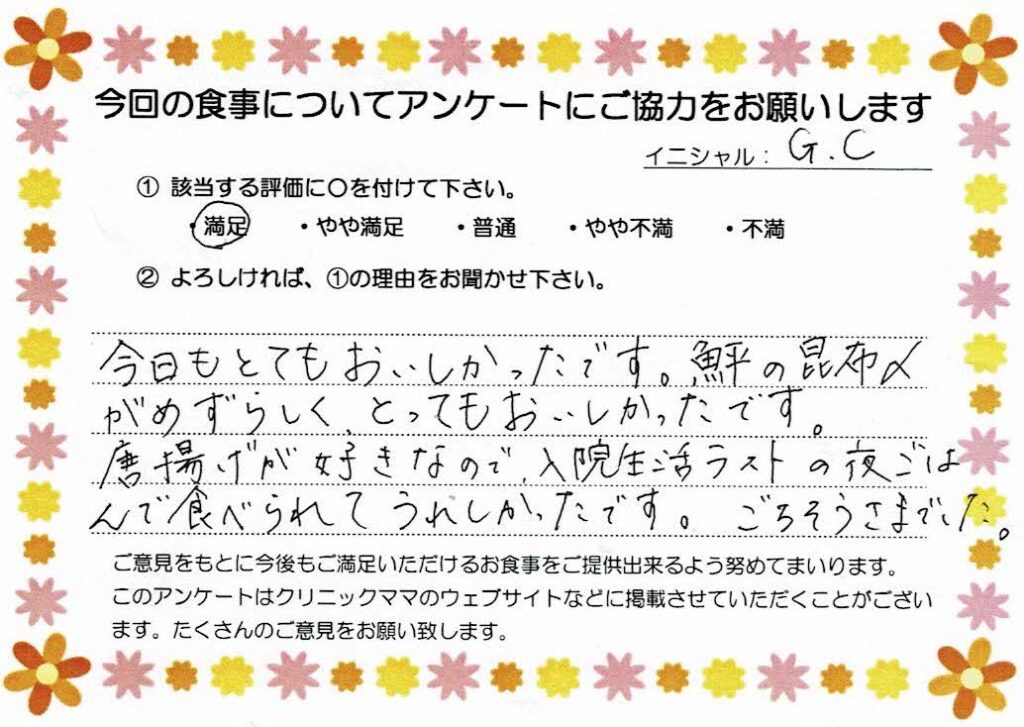 今回の食事についてアンケートにご協力をお願いします
イニシャル： G.C
① 該当する評価に〇を付けて下さい。
・満足 ・やや満足 ・普通 ・やや不満 ・不満
② よろしければ、①の理由をお聞かせ下さい。
今日もとてもおいしかったです。鮃の昆布〆
がめずらしく、とってもおいしかったです。
唐揚げが好きなので、入院生活ラストの夜ごは
んで食べられてうれしかったです。 ごちそうさまでした。
ご意見をもとに今後もご満足いただけるお食事をご提供出来るよう努めてまいります。
このアンケートはクリニックママのウェブサイトなどに掲載させていただくことがござい
ます。たくさんのご意見をお願い致します。